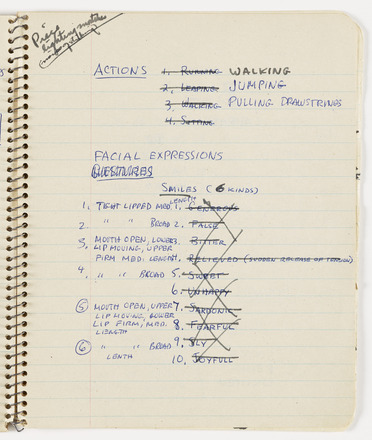 Piece
lighting matches
ACTIONS 1. RUNNING WALKING
2. LEAPING JUMPING
3. WALKING PULLING DRAWSTRINGS
4. SITTING
FACIAL EXPRESSIONS
GUESTURES
SMILES (6 KINDS)
1. TIGHT LIPPED MED. LENGTH 1. GENREOUS
2. " " BROAD 2. FALSE
3. MOUTH OPEN, LOWER 3. BITTER
LIP MOVING, UPPER
FIRM MED. LENGTH 4. RELIEVED (SUDDEN RELEASE OF TENSION)
4. " " BROAD 5. SWEET
6. UNHAPPY
5 MOUTH OPEN, UPPER 7. SARDONIC
LIP MOVING, LOWER
LIP FIRM, MED. 8. FEARFUL
LENGTH
6 " " BROAD 9. SLY
LENTH 10. JOYFULL